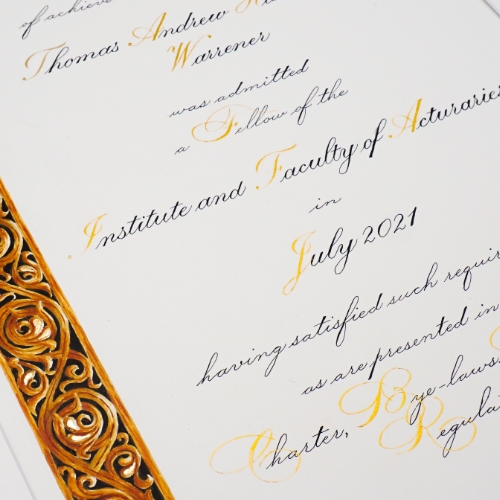 of achieve
Thomas Andrew
Warrener
was admitted
a Fellow of the
Institute and Faculty of Acturaries
in
July 2021
having satisfied such requir
as are presented in
Charter, Bye-laws
Regula